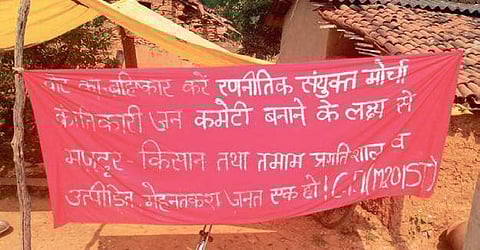 वोट का बहिष्कार करें रणनीतिक संयुक्त मोर्चा
क्रांतिकारी जन कमेटी बनाने के लक्ष्य से
मजदूर - किसान तथा तमाम प्रगतिशील व
उत्पीड़ित मेहनतकश जनता एक हो! (MAOIST)